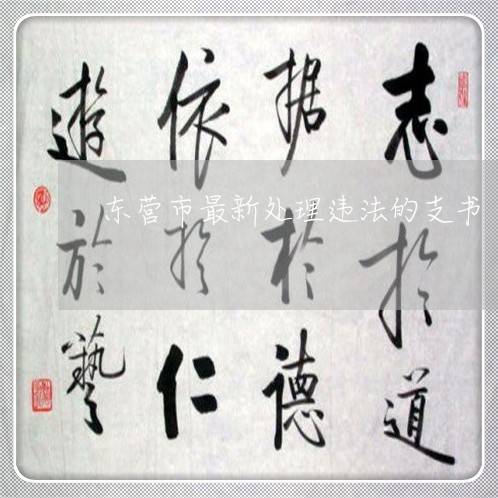 志於道
据於德
依於仁
遊於藝
东营市最新处理违法的支书